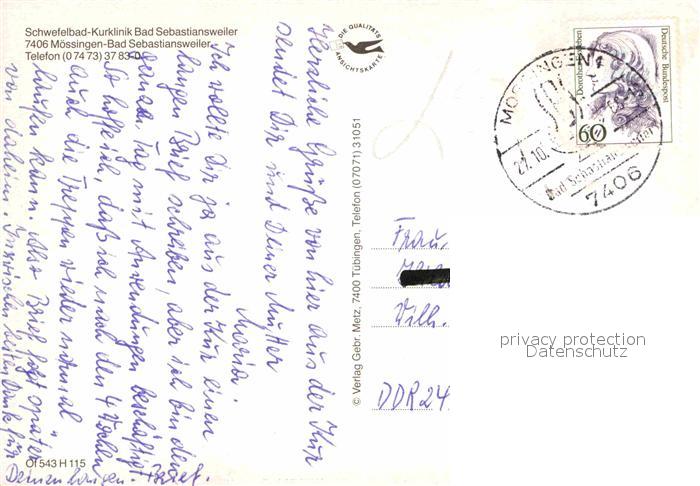 Schwefelbad-Kurklinik Bad Sebastiansweiler
7406 Mössingen-Bad Sebastiansweiler
Telefon (0 74 73) 37 83-0
Herzliche Grüße von hier aus der Kur
sendet Dir und Deiner Mutter
Maria.
Ich wollte Dir ja aus der Kur einen
langen Brief schreiben, aber ich bin den
ganzen Tag mit Anwendungen beschäftigt.
So hoffe ich, daß ich nach den 4 Wochen
auch die Treppen wieder normal
laufen kann. Also Brief folgt später
von daheim. Inzwischen besten Dank für
Deinen langen Brief.
Öf 543 H 115
© Verlag Gebr. Metz, 7400 Tübingen, Telefon (0 70 71) 3 10 51
DIE QUALITÄTS
ANSICHTSKARTE
Dorothea Erxleben
Deutsche Bundespost
60
MÖSSINGEN 1
27.10.
Bad Sebastiansweiler
7406
Frau
Wilh.
DDR 24
privacy protection
Datenschutz